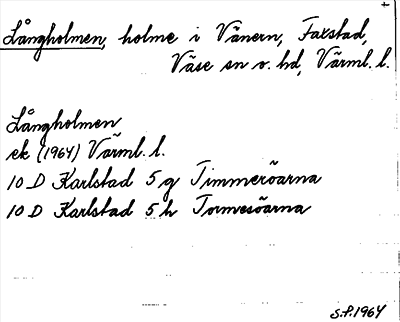 Långholmen, holme i Vänern, Faxstad,
Väse sn o. hd, Värml. l.
Långholmen
ek (1964) Värml. l.
10 D Karlstad 5 g Timmeröarna
10 D Karlstad 5 h Tormesöarna
S.P. 1964